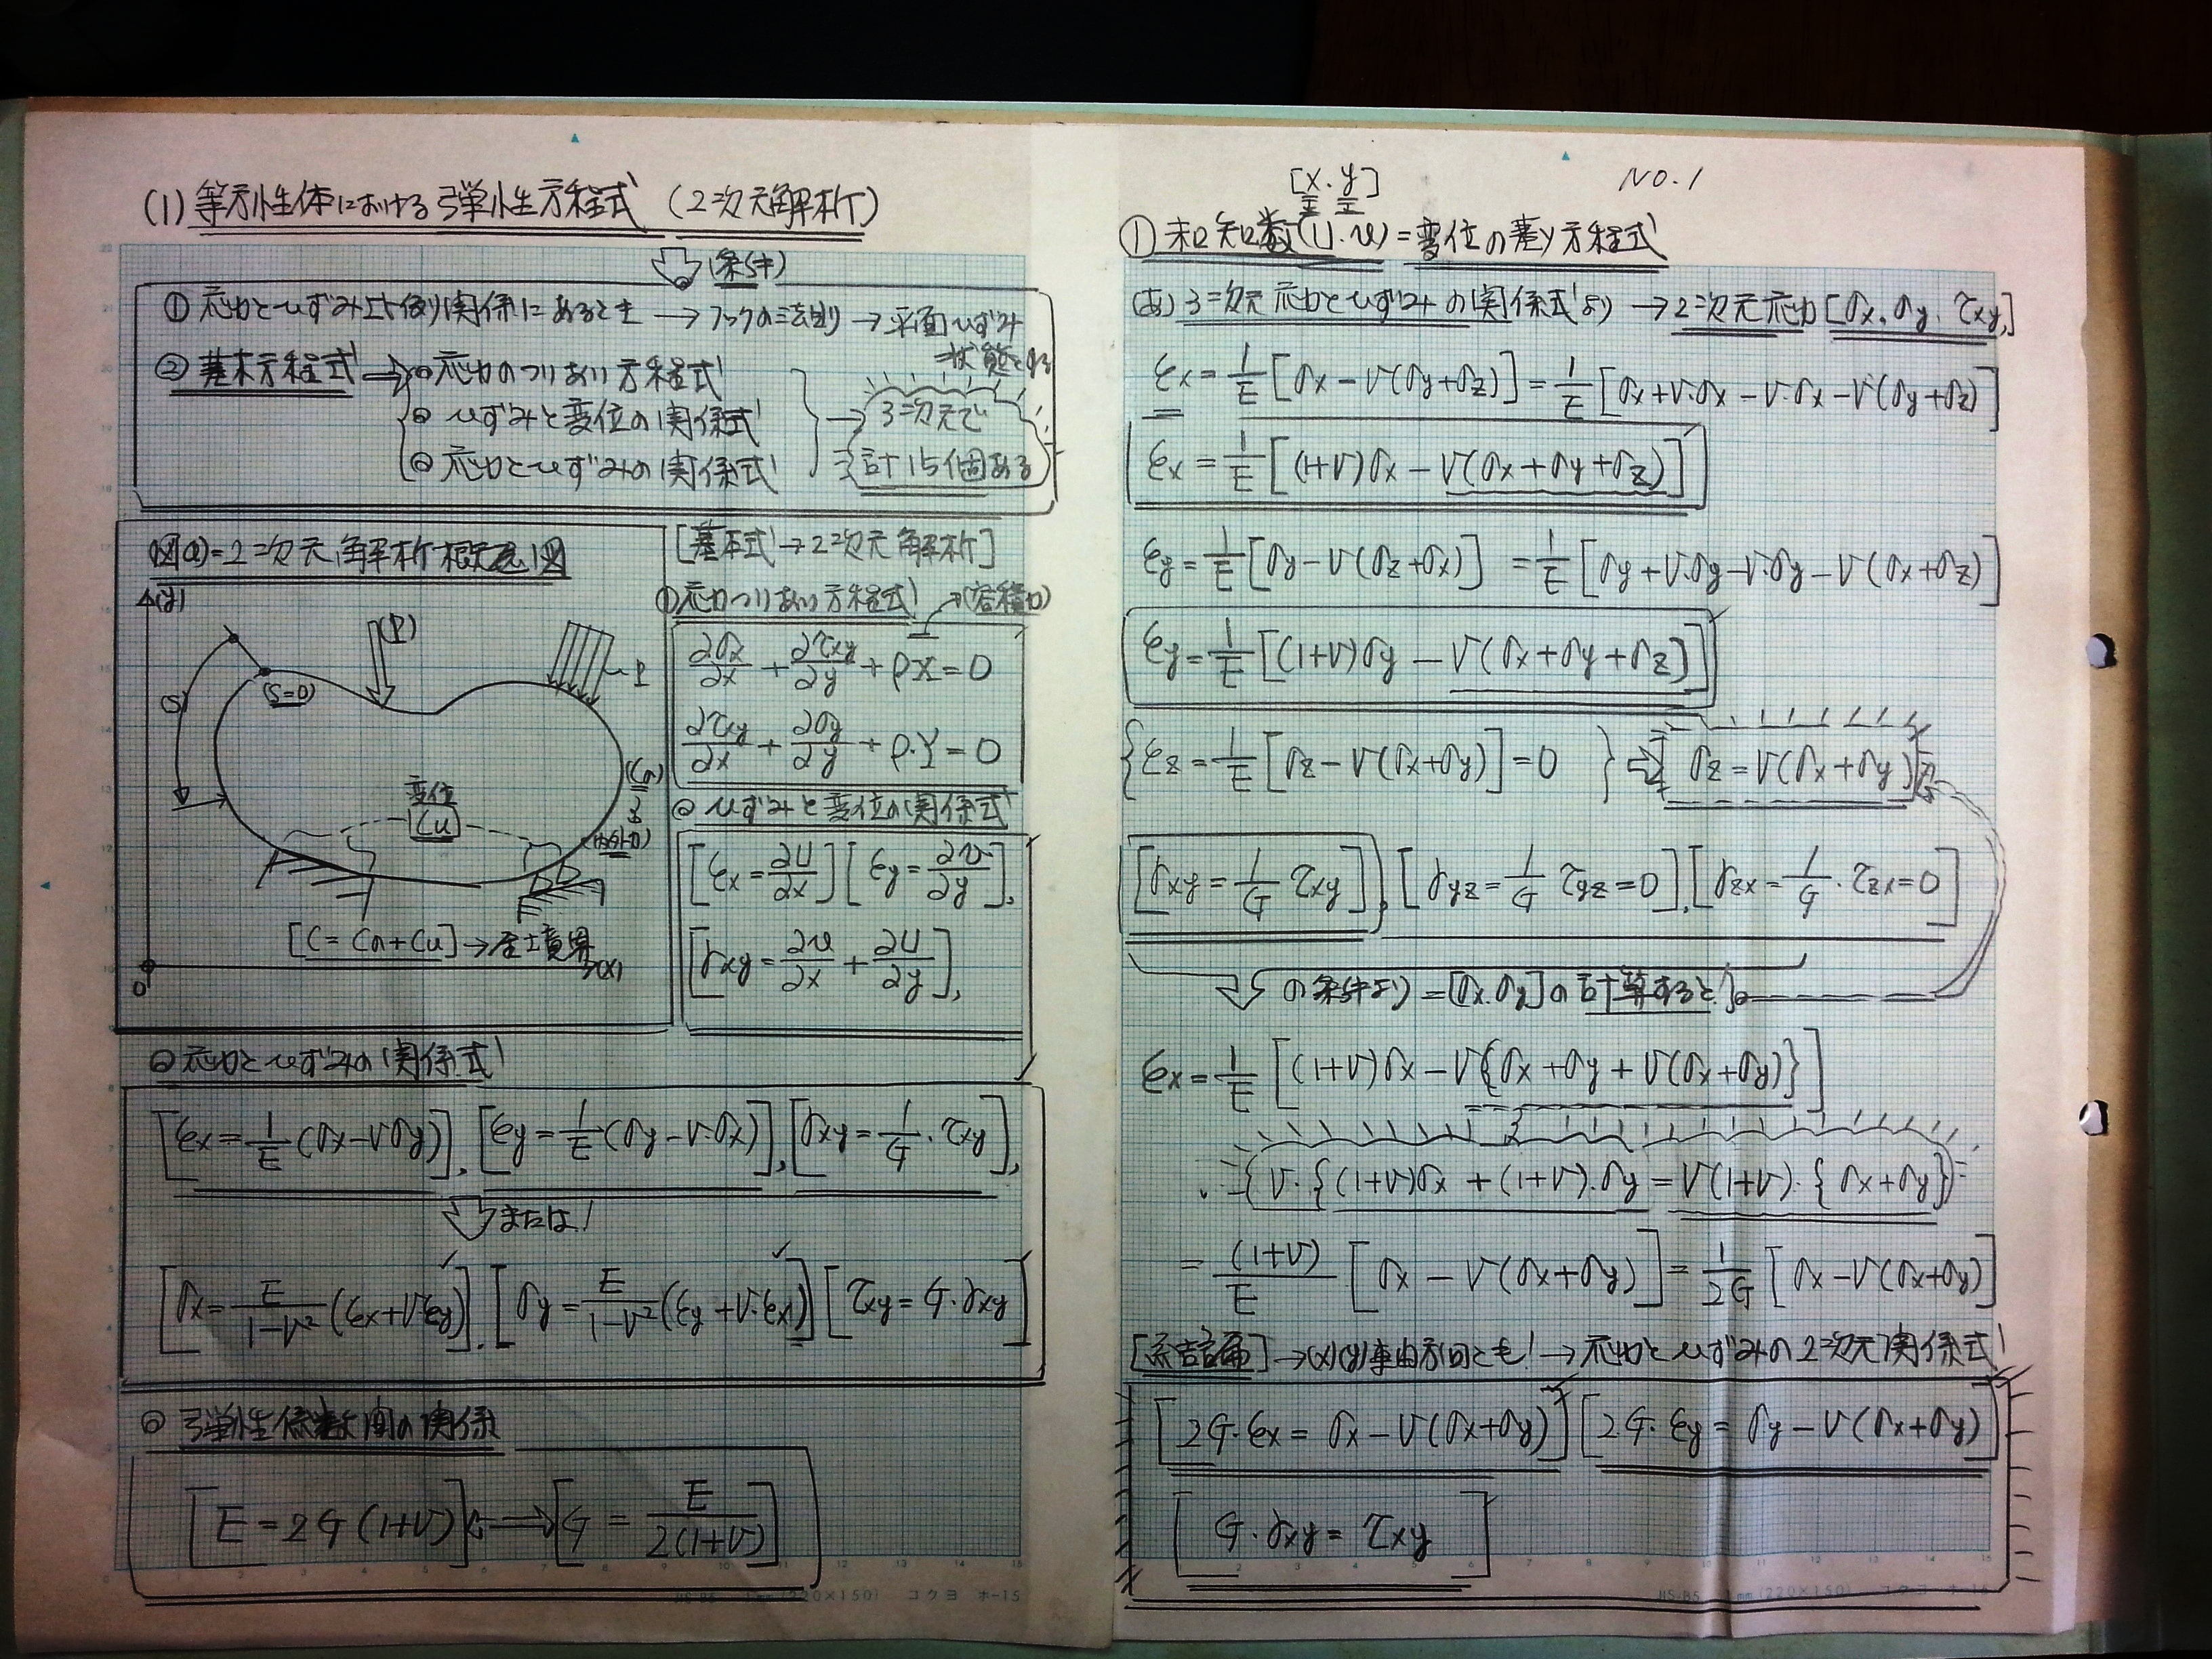 (1) 等方性体における弾性方程式 (2次元解析)
(条件)
① 応力とひずみ比例関係にあるとき → フックの法則 → 平面ひずみ
状態とする
② 基本方程式 → ◎ 応力のつりあい方程式
◎ ひずみと変位の関係式
◎ 応力とひずみの関係式
3次元で
計15個ある
図(a)=2次元解析概念図
(y)
(P)
P
(S=0)
S
(Cσ)
変位
Cu
[C = Cσ + Cu] →
(x)
0
[基本式 → 2次元解析]
① 応力つりあい方程式 → (容積力)
∂σx/∂x + ∂τxy/∂y + ρX = 0
∂τxy/∂x + ∂σy/∂y + ρ·Y = 0
◎ ひずみと変位の関係式
[εx = ∂U/∂x] [εy = ∂v/∂y],
[γxy = ∂v/∂x + ∂U/∂y],
◎ 応力とひずみの関係式
[εx = 1/E (σx − νσy)], [εy = 1/E (σy − ν·σx)], [γxy = 1/G · τxy],
または!
[σx = E/1−ν² (εx + νεy)], [σy = E/1−ν² (εy + ν·εx)] [τxy = G·γxy]
◎ 弾性係数間の関係
[E = 2G(1+ν)] ⟺ [G = E/2(1+ν)]
HS-B5 1mm (220×150) コクヨ ホ-15
NO.1
[x·y]
① 未知数(U·v) = 変位の差分方程式
(あ) 3次元応力とひずみの関係式より → 2次元応力 [σx, σy, τxy,]
εx = 1/E [σx − ν(σy+σz)] = 1/E [σx + ν·σx − ν·σx − ν(σy+σz)]
εx = 1/E [(1+ν)σx − ν(σx+σy+σz)]
εy = 1/E [σy − ν(σz+σx)] = 1/E [σy + ν·σy − ν·σy − ν(σx+σz)]
εy = 1/E [(1+ν)σy − ν(σx+σy+σz)]
{εz = 1/E [σz − ν(σx+σy)] = 0} ⇒ σz = ν(σx+σy)
[γxy = 1/G τxy], [γyz = 1/G τyz = 0], [γzx = 1/G · τzx = 0]
の条件より = [σx·σy]の計算すると!
εx = 1/E [(1+ν)σx − ν{σx+σy+ν(σx+σy)}]
{ν·{(1+ν)σx + (1+ν)·σy = ν(1+ν)·{σx+σy}}
= (1+ν)/E [σx − ν(σx+σy)] = 1/2G [σx − ν(σx+σy)]
[結論] → (x)(y)軸方向とも! → 応力とひずみの2次元関係式!
[2G·εx = σx − ν(σx+σy)] [2G·εy = σy − ν(σx+σy)]
[G·γxy = τxy]
HS-B5 1mm (220×150) コクヨ ホ-15